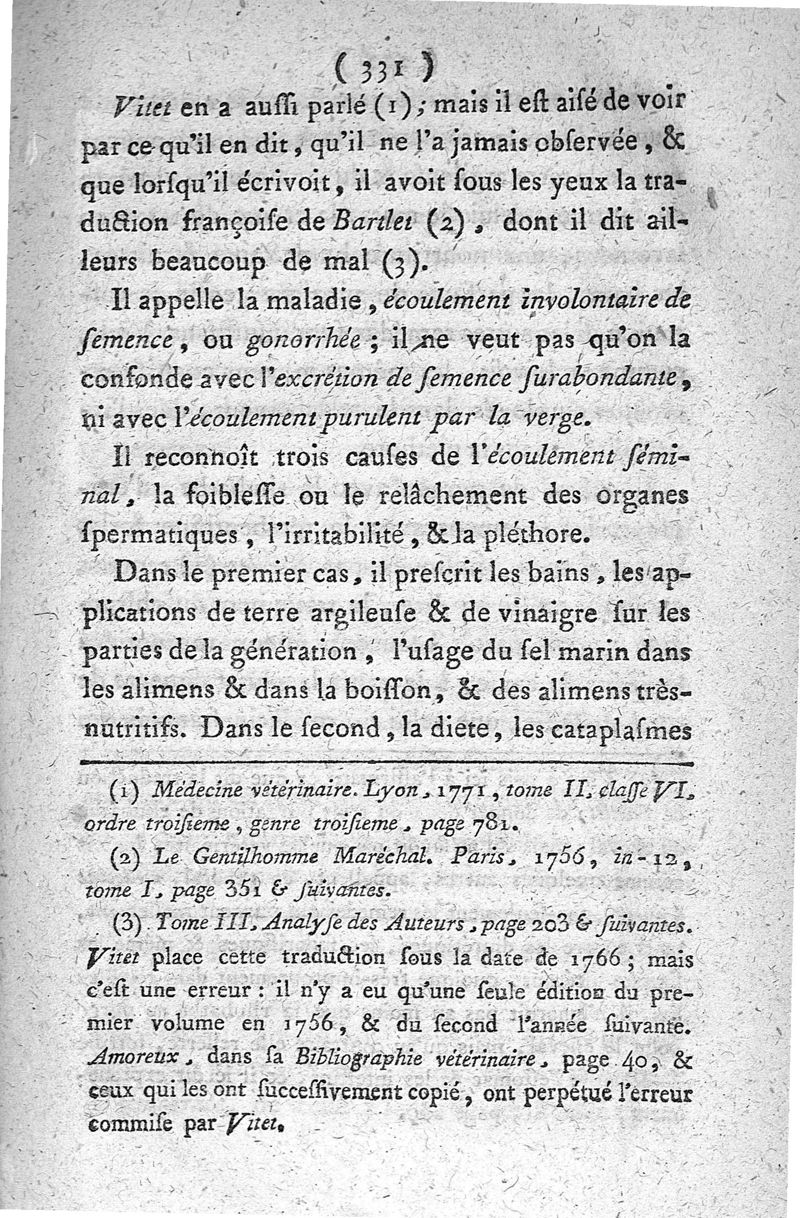 ( 331 )
Vitet en a auſſi parlé (1); mais il eſt aiſé de voir
par ce qu'il en dit, qu'il ne l'a jamais obſervée, &
que lorſqu'il écrivoit, il avoit ſous les yeux la tra-
duction françoiſe de Bartlet (2), dont il dit ail-
leurs beaucoup de mal (3).
Il appelle la maladie, écoulement involontaire de
ſemence, ou gonorrhée; il ne veut pas qu'on la
confonde avec l'excrétion de ſemence ſurabondante,
ni avec l'écoulement purulent par la verge.
Il reconnoît trois cauſes de l'écoulement ſémi-
nal, la foibleſſe ou le relâchement des organes
ſpermatiques, l'irritabilité, & la pléthore.
Dans le premier cas, il preſcrit les bains, les ap-
plications de terre argileuſe & de vinaigre ſur les
parties de la génération, l'uſage du ſel marin dans
les alimens & dans la boiſſon, & des alimens très-
nutritifs. Dans le ſecond, la diete, les cataplaſmes
(1) Médecine vétérinaire. Lyon, 1771, tome II, claſſe VI,
ordre troiſieme, genre troiſieme, page 781.
(2) Le Gentilhomme Maréchal. Paris, 1756, in-12,
tome I, page 351 & ſuivantes.
(3) Tome III, Analyſe des Auteurs, page 203 & ſuivantes.
Vitet place cette traduction ſous la date de 1766; mais
c'eſt une erreur: il n'y a eu qu'une ſeule édition du pre-
mier volume en 1756, & du ſecond l'année ſuivante.
Amoreux, dans ſa Bibliographie vétérinaire, page 40, &
ceux qui les ont ſucceſſivement copié, ont perpétué l'erreur
commiſe par Vitet.